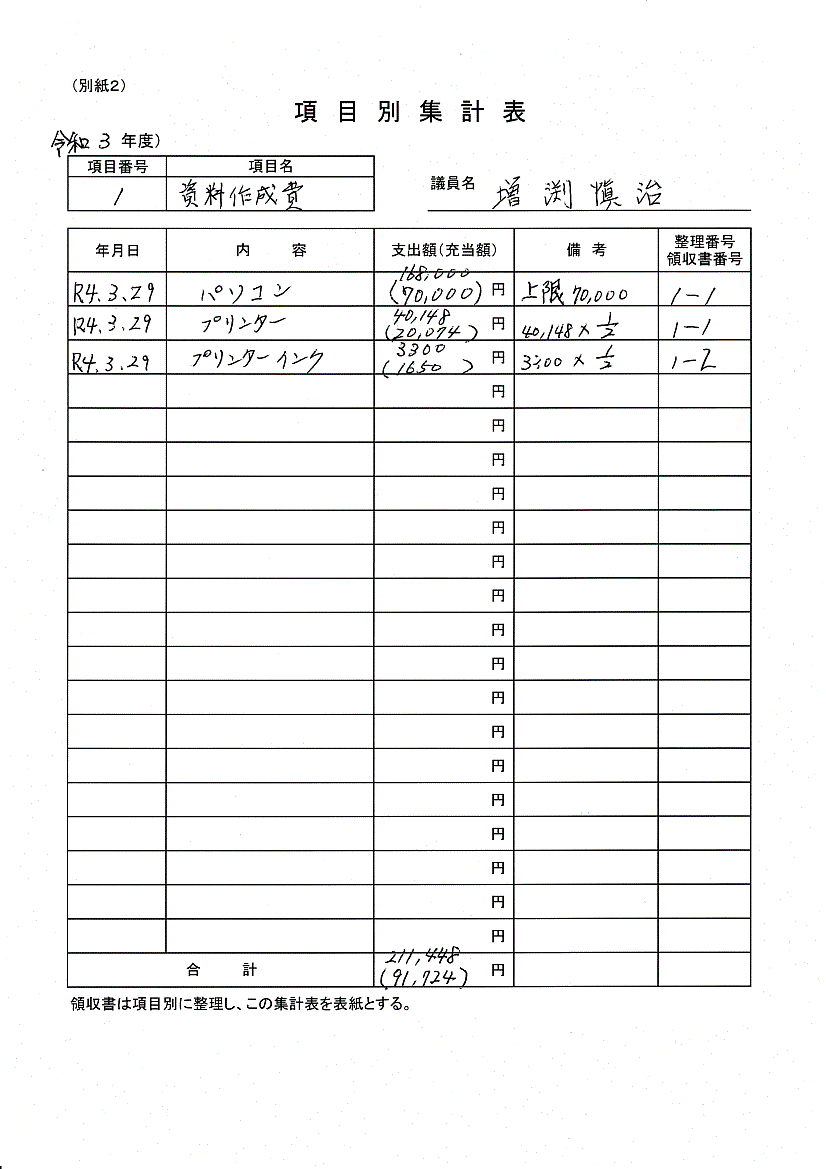 （別紙２）
項目別集計表
令和３年度）
項目番号 項目名
1 資料作成費
議員名 増渕慎治
年月日 内容 支出額（充当額） 備考 整理番号 領収書番号
168,000
R4.3.29 パソコン (70,000) 円 上限 70,000 1-1
40,148
R4.3.29 プリンター (20,074) 円 40,148×1/2 1-1
3300
R4.3.29 プリンターインク (1650) 円 3300×1/2 1-2
円
円
円
円
円
円
円
円
円
円
円
円
円
円
円
円
円
211,448
合計 (91,724) 円
領収書は項目別に整理し、この集計表を表紙とする。